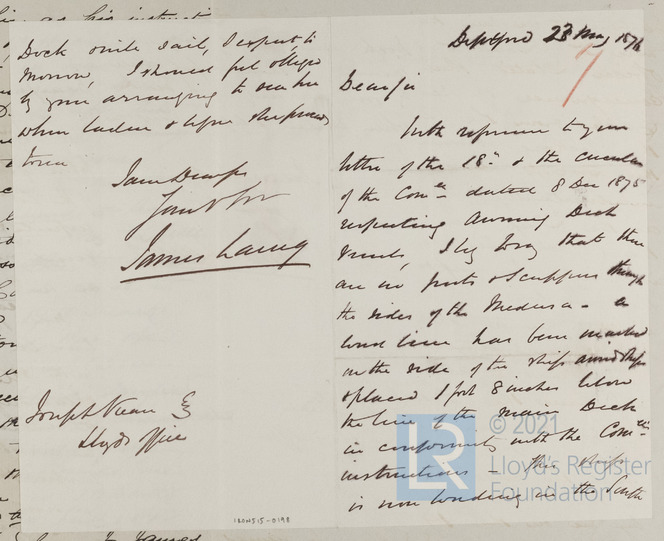 Deptford 23 May 1876
Dear Sir
With reference to your
letter of the 18th & the circular
of the Comee dated 8 Dec 1875
respecting Awning Deck
vessels, I beg to say that there
are no ports & scuppers through
the sides of the Medusa - a
load line has been marked
on the side of the ship amidships
& placed 1 foot 8 inches below
the line of the main Deck
in conformity with the Comees
instructions - this ship
is now loading in the South
Dock & will sail, I expect, to
morrow, I should feel obliged
by your arranging to see her
when laden & before she proceeds
to sea
I am Dear Sir
Yours truly
James Laing
Joseph
Lloyds Office
LR
© 2021
Lloyd's Register
Foundation
IRON515-0198